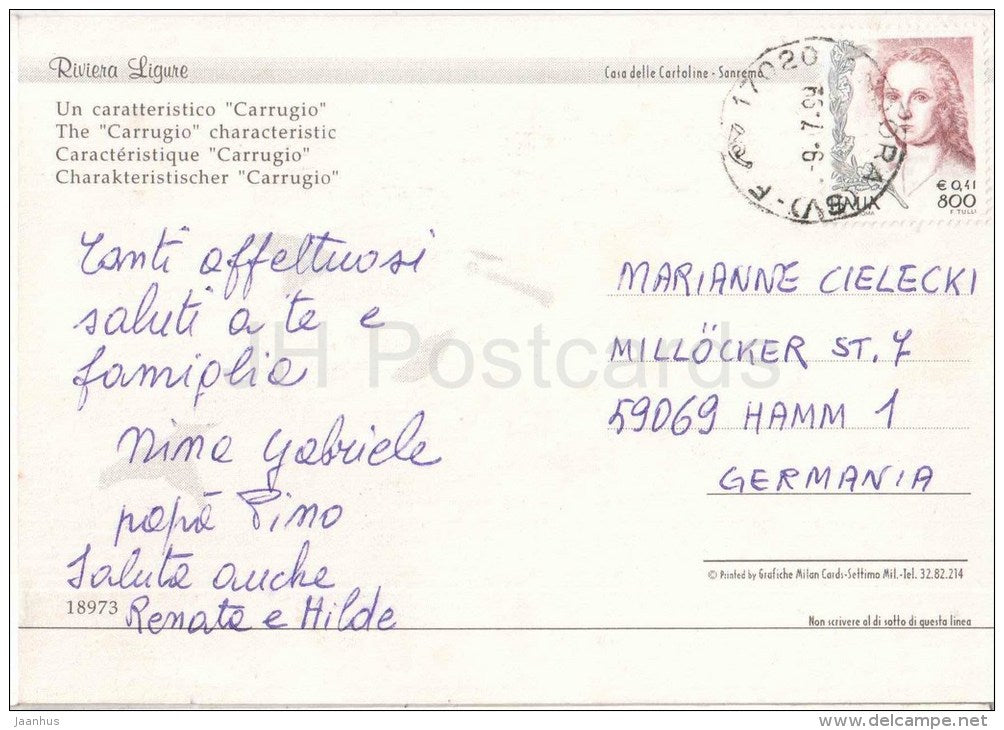 Riviera Ligure
Casa delle Cartoline - Sanremo
Un caratteristico "Carrugio"
The "Carrugio" characteristic
Caractéristique "Carrugio"
Charakteristischer "Carrugio"
17020
€ 0,41
800
F. TULLI
Tanti affettuosi
saluti a te e
famiglia
Nina Gabriele
papà Pino
Saluta anche
Renata e Hilde
18973
MARIANNE CIELECKI
MILLÖCKER ST. 7
59069 HAMM 1
GERMANIA
© Printed by Grafiche Milan Cards-Settimo Mil.-Tel. 32.82.214
Non scrivere al di sotto di questa linea
JH Postcards
Jaanhus
www.delcampe.net